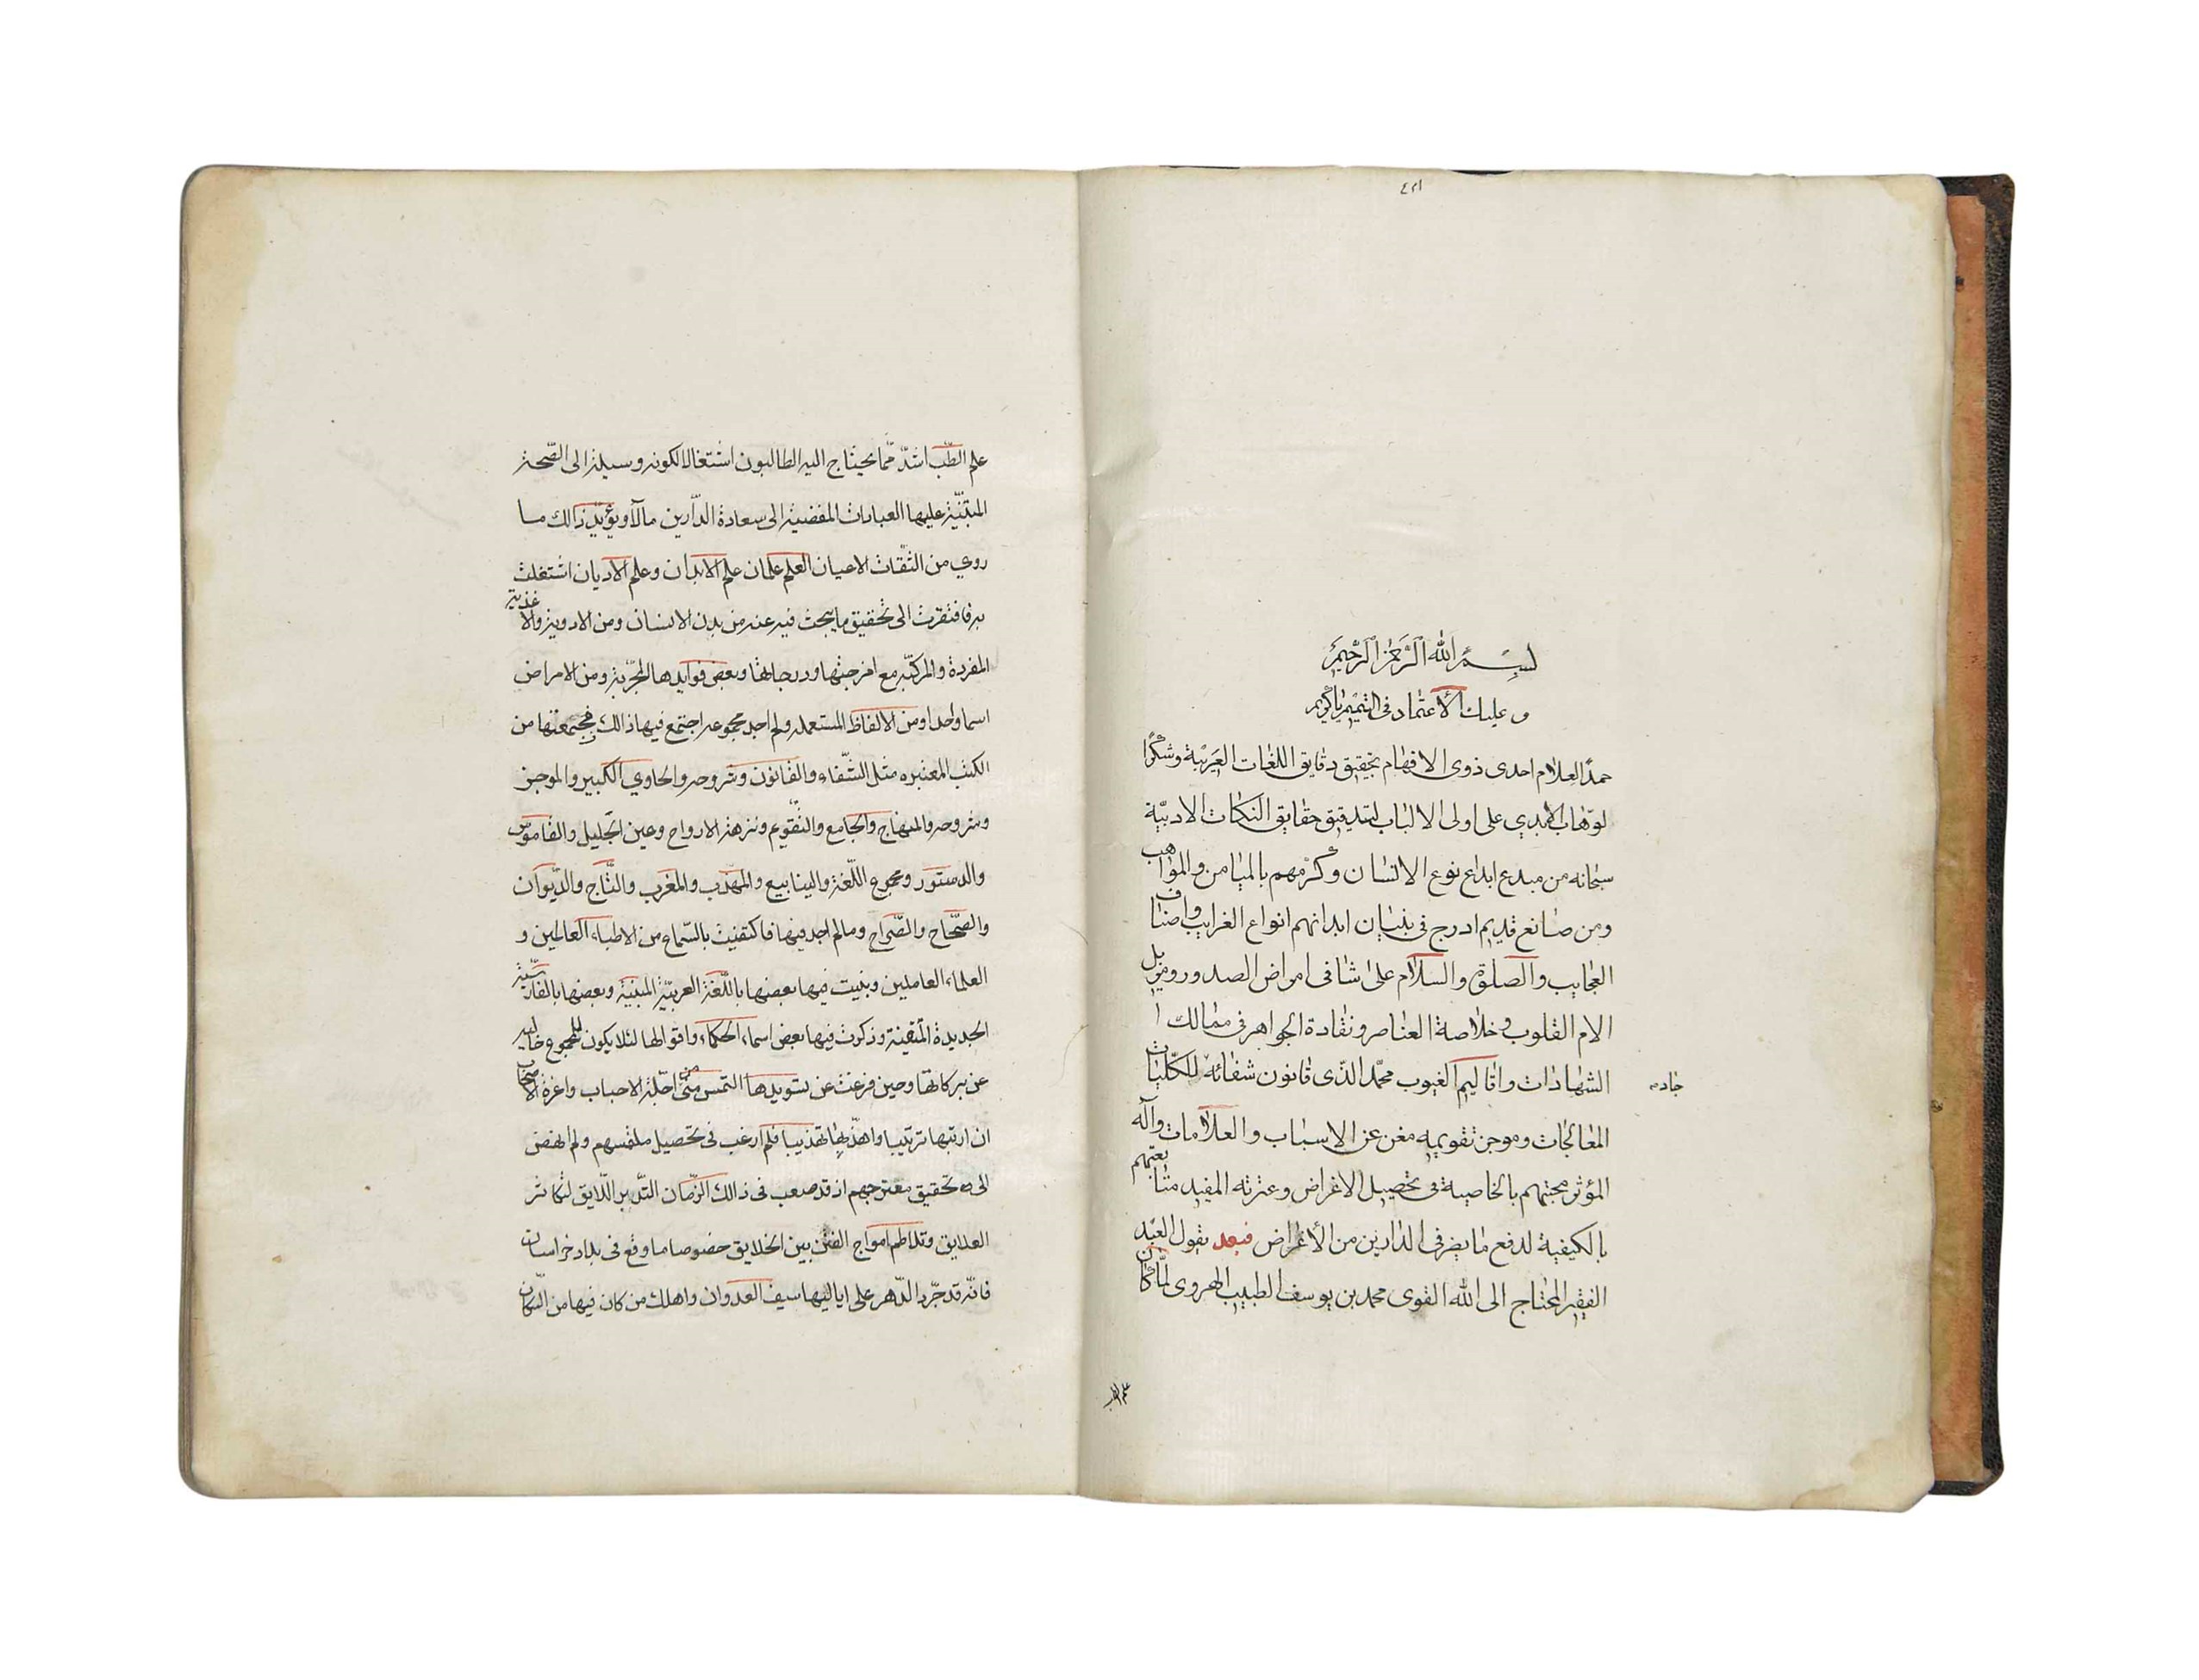 ٤٢١
بسم الله الرحمن الرحيم
وعليك الاعتماد في التتميم يا كريم
حمدًا لعلام احدى ذوى الافهام بتحقيق دقايق اللغات العربية وشكرًا
لوهاب الايدي على اولى الالباب لتدقيق حقايق النكات الادبيّة
سبحانه من مبدع ابداع نوع الانسان وكرمهم بالميامن والمواهب
ومن صانع قديم ادرج في بنيان ابدانهم انواع الغرايب واصناف
العجايب والصلوة والسلام على شافى امراض الصدور ومزيل
الام القلوب خلاصة العناصر ونقادة الجواهر في ممالك
الشهادات واقاليم الغيوب محمّد الذّى قانون شفائه للكلّيات
جاده
المعالجات وموجز تقويمه مغن عن الاسباب والعلامات وآله
المؤثر محبتهم بالخاصية في تحصيل الاغراض وعترته المفيد متابعتهم
بالكيفية لدفع ما يضر في الدارين من الأغراض فبعد يقول العبد
الفقير المحتاج الى الله القوى محمد بن يوسف الطبيب الهروى لمّا كان
علم الطب
علم الطّب اشدّ ممّا يحتاج اليه الطالبون اشتغالا لكونه وسيلة الى الصّحة
المبتنيّة عليها العبادات المفضية الى سعادة الدّارين مآلا ويؤيّد ذالك ما
روي من الثقات الاعيان العلم علمان علم الابدان وعلم الاديان اشتغلت
به فافتقرت الى تحقيق ما يبحث فيه عنه من بدن الانسان ومن الادوية والاغذية
المفردة والمركبّة مع امزجتها ودرجاتها وبعض فوايدها المجرّبة ومن الامراض
اسما واحدا ومن الالفاظ المستعمله ولم اجد مجموعه اجتمع فيها ذالك فجمعتها من
الكتب المعتبره مثل الشّفاء والقانون وشروحه والحاوي الكبير والموجز
وشروحه والمنهاج والجامع والتقويم ونزهة الارواح وعين الجليل والقاموس
والدستور ومجموع اللّغة والينابيع والمهذّب والمغرب والتّاج والدّيوان
والصّحاح والصّراح وما لم اجد فيها فاكتفيت بالسّماع من الاطباء العالمين و
العلماء العاملين وبنيت فيها بعضها باللّغة العربيّة المبنيّة وبعضها بالفارسّية
الجديدة المتقنة وذكرت فيها بعض اسماء الحكماء واقوالها لئلا يكون المجموع خاليه
عن بركاتها وحين فرغت عن تسويدها التمس منّى اجلّة الاحباب واعزة الاصحاب
ان ارتبها ترتيبا واهذّبها تهذيبا فلم ارغب في تحصيل ملتمسهم ولم انهض
الى تحقيق مقترحهم اذ قد صعب في ذالك الزّمان التّدبير اللّايق لتكاثر
العلايق وتلاطم امواج الفتن بين الخلايق خصوصا ما وقع في بلاد خراسان
فانّه قد جرّد الدّهر على اياليها سيف العدوان واهلك من كان فيها من السّكان